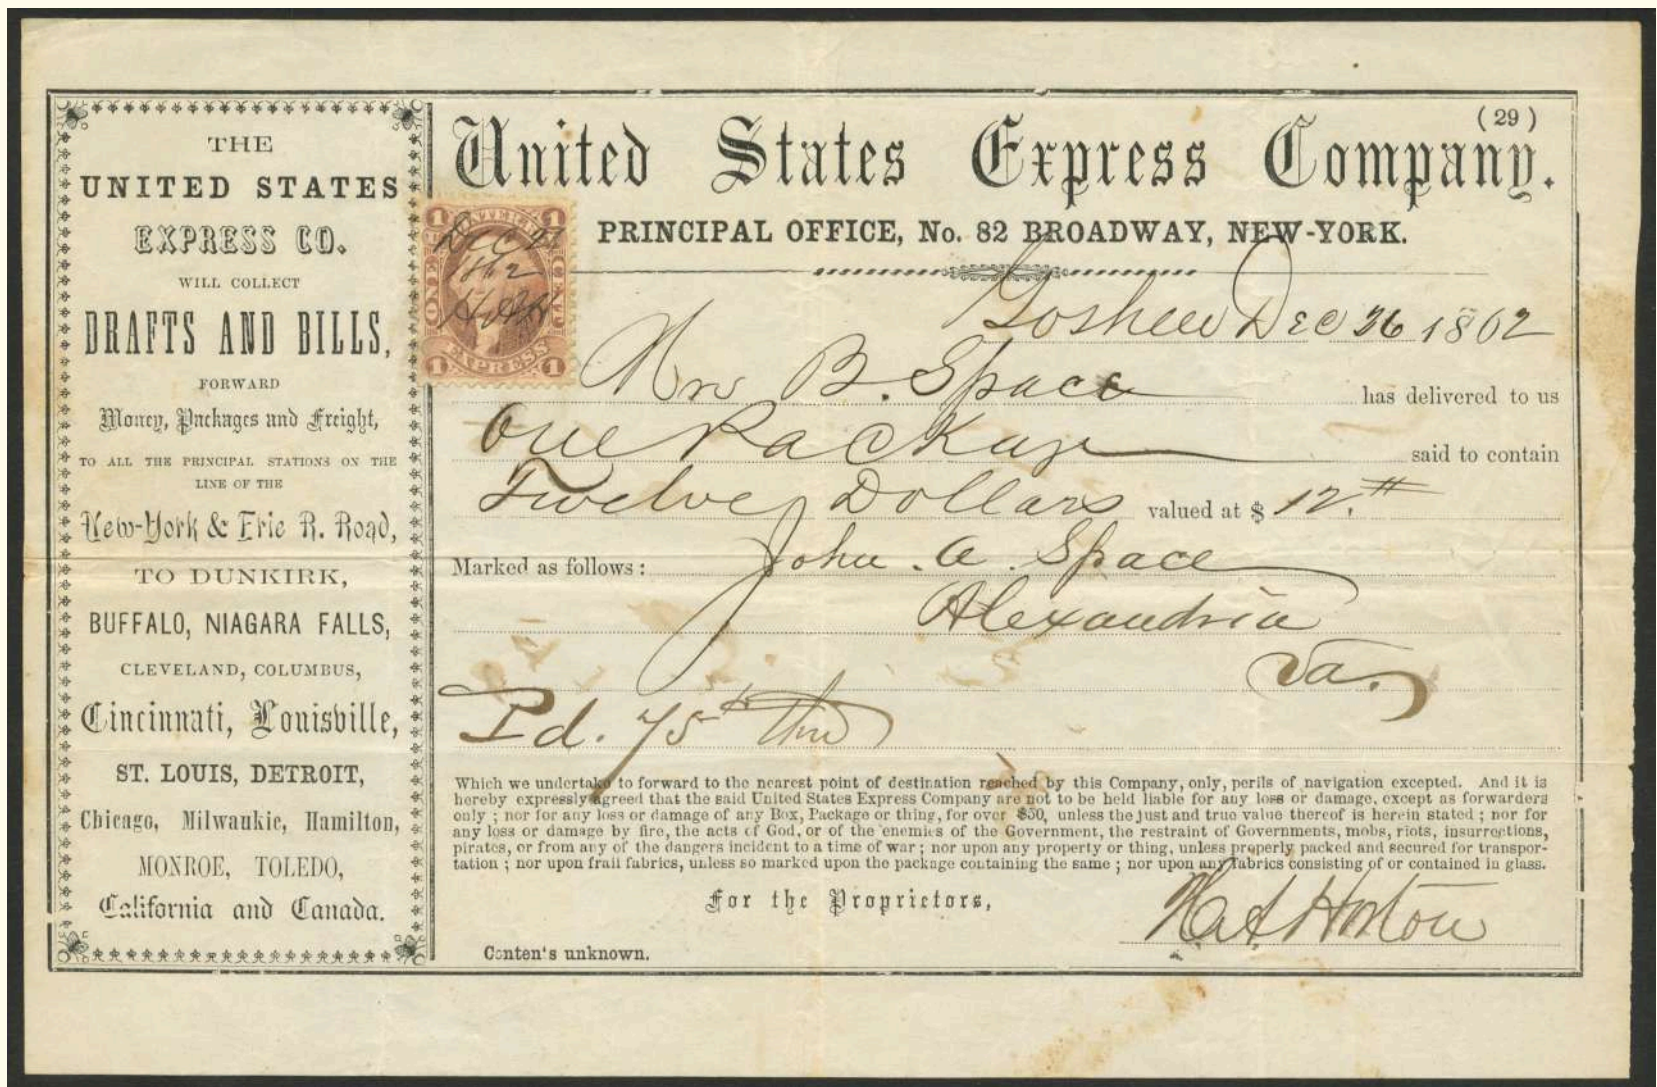 THE
UNITED STATES
EXPRESS CO.
WILL COLLECT
DRAFTS AND BILLS,
FORWARD
Money, Packages and Freight,
TO ALL THE PRINCIPAL STATIONS ON THE
LINE OF THE
New-York & Erie R. Road,
TO DUNKIRK,
BUFFALO, NIAGARA FALLS,
CLEVELAND, COLUMBUS,
Cincinnati, Louisville,
ST. LOUIS, DETROIT,
Chicago, Milwaukie, Hamilton,
MONROE, TOLEDO,
California and Canada.
(29)
United States Express Company.
PRINCIPAL OFFICE, No. 82 BROADWAY, NEW-YORK.
1 1
ONE CENT
Dec 27
1862
EXPRESS
1 1
Goshen Dec 26 1862
Mrs B. Space has delivered to us
One Package said to contain
Twelve Dollars valued at $ 12.
Marked as follows: John. A. Space
Alexandria
Va.
Pd. 75
Which we undertake to forward to the nearest point of destination reached by this Company, only, perils of navigation excepted. And it is
hereby expressly agreed that the said United States Express Company are not to be held liable for any loss or damage, except as forwarders
only; nor for any loss or damage of any Box, Package or thing, for over $50, unless the just and true value thereof is herein stated; nor for
any loss or damage by fire, the acts of God, or of the enemies of the Government, the restraint of Governments, mobs, riots, insurrections,
pirates, or from any of the dangers incident to a time of war; nor upon any property or thing, unless properly packed and secured for transpor-
tation; nor upon frail fabrics, unless so marked upon the package containing the same; nor upon any fabrics consisting of or contained in glass.
For the Proprietors,
Nat Horton
Conten's unknown.